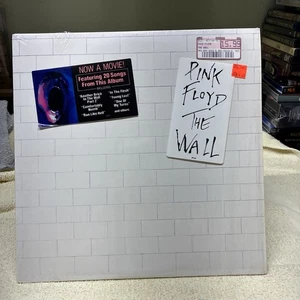 NOW A MOVIE!
Featuring 20 Songs
From This Album
"Another Brick
In The Wall
Part 2"
"Comfortably
Numb"
"Run Like Hell"
"In The Flesh"
"Young Lust"
"One Of
My Turns"
and others
15.99
PINK
FLOYD
THE
WALL